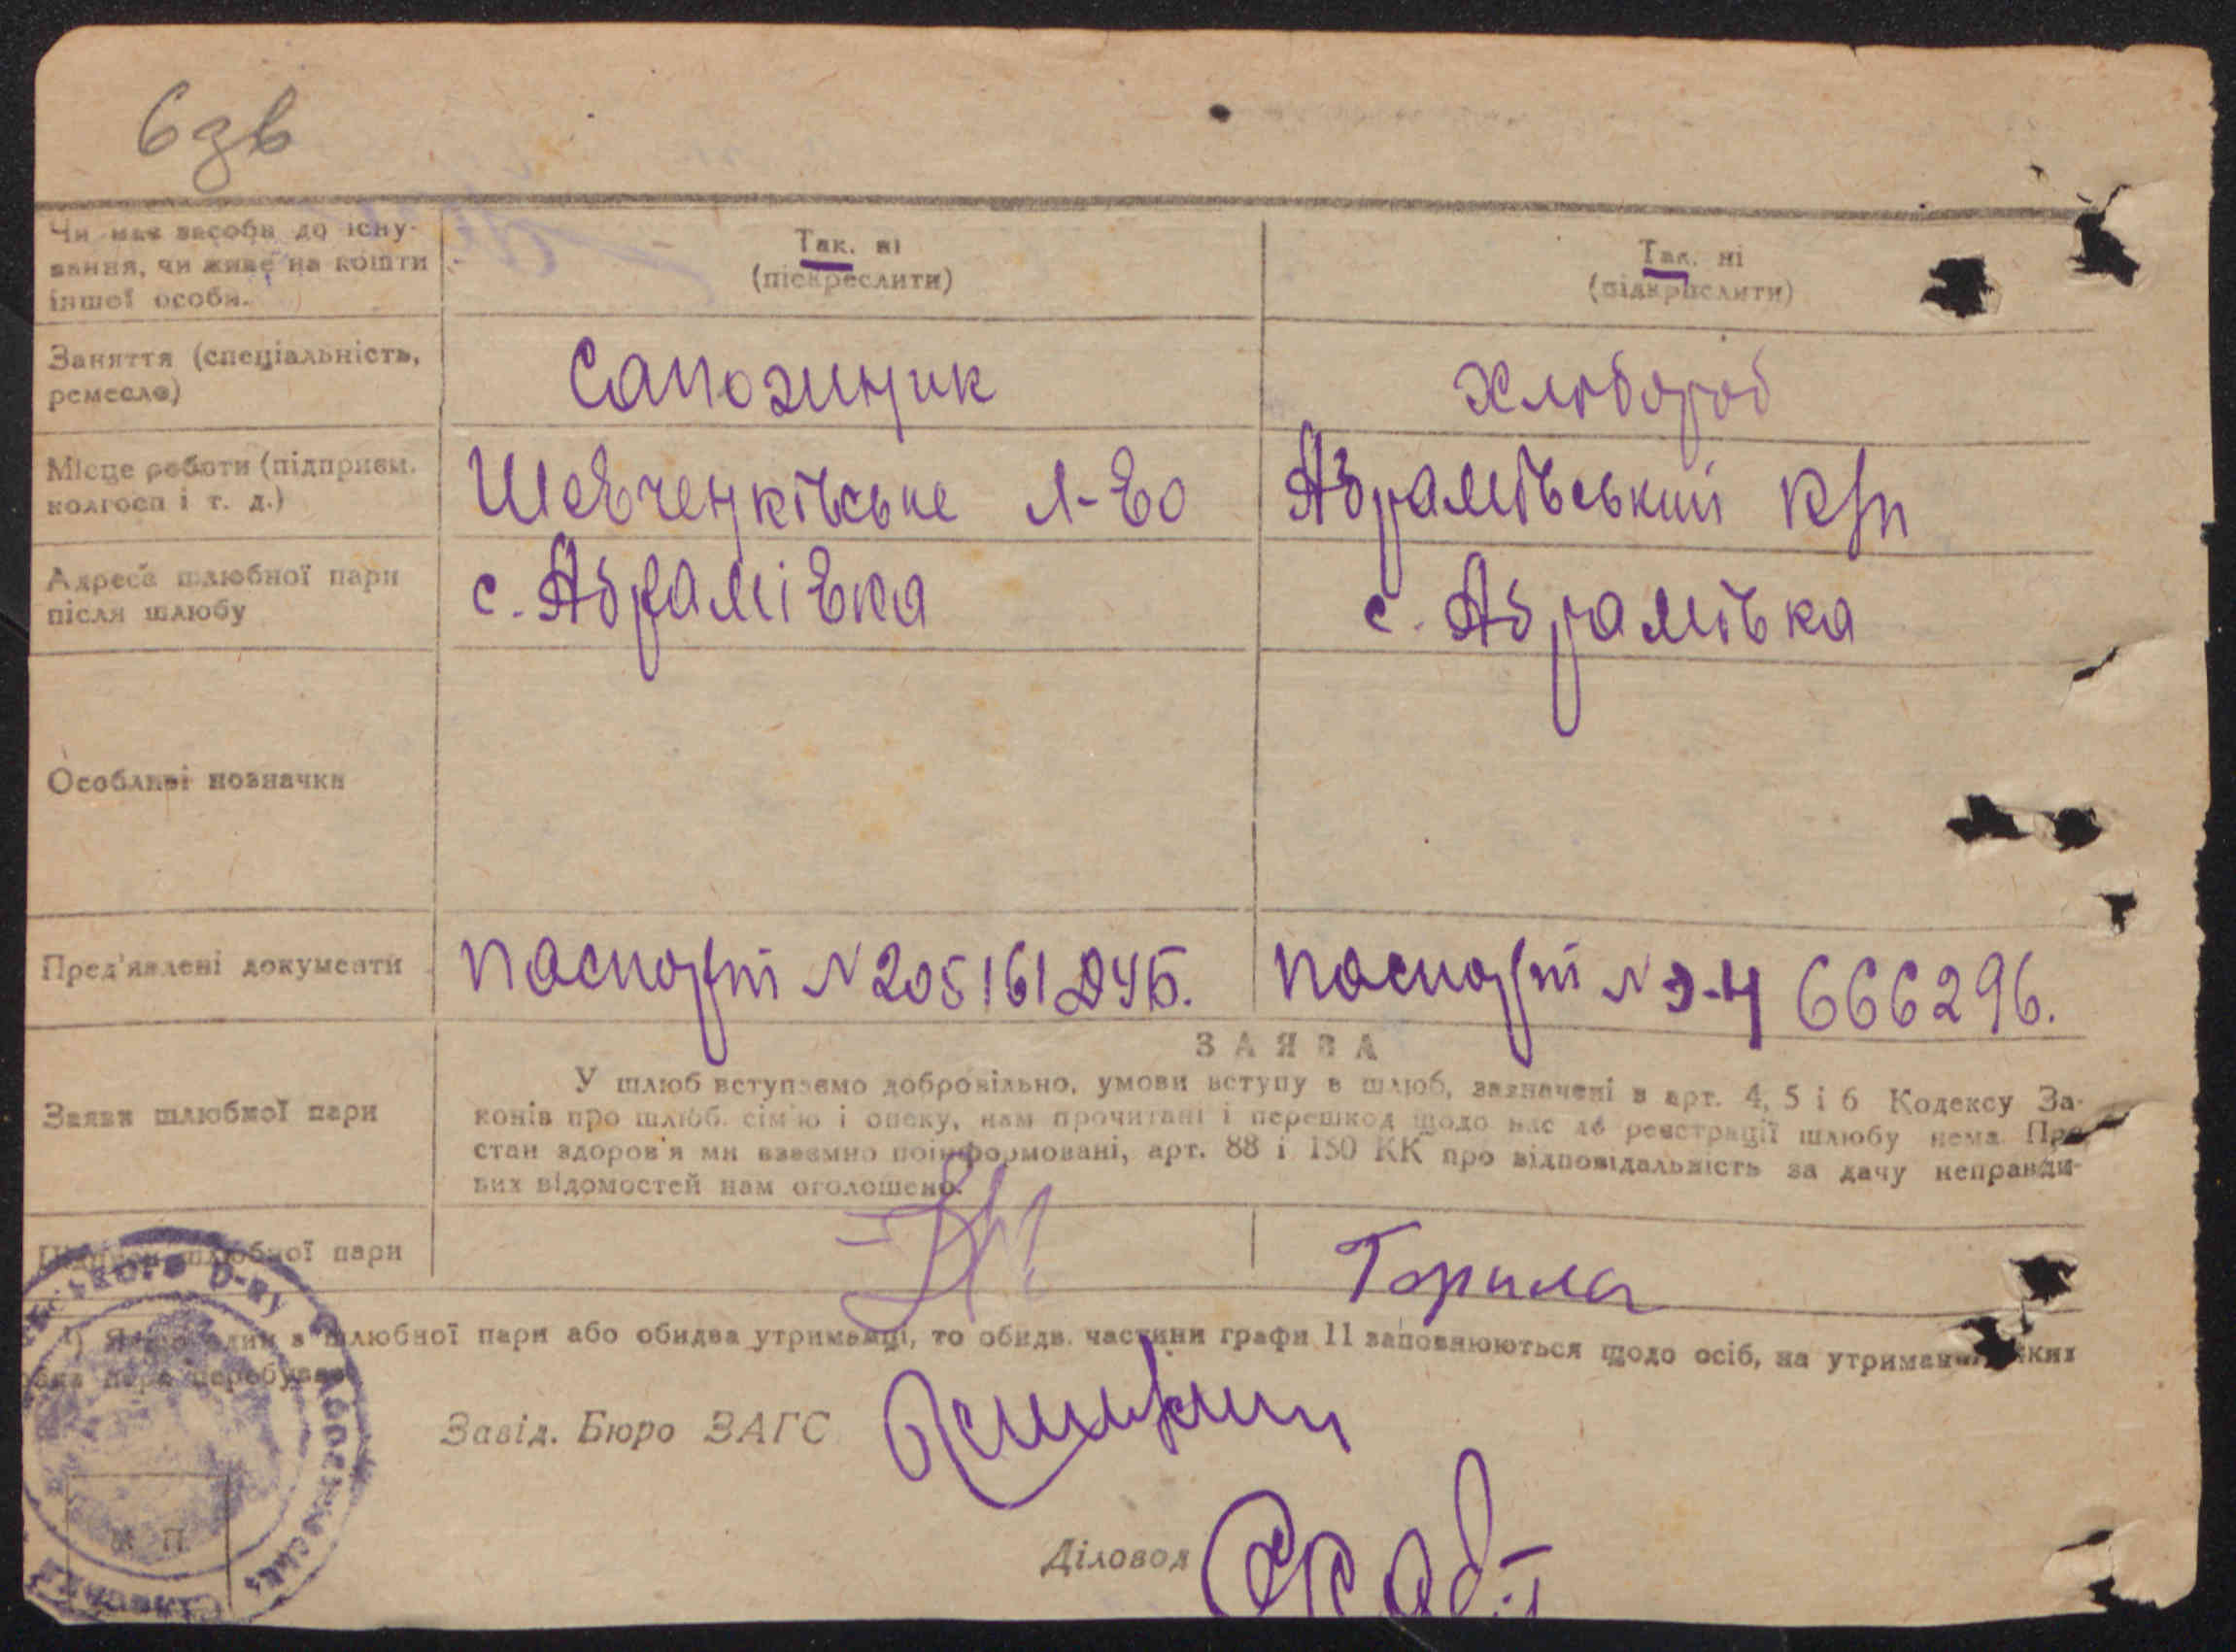 6 зв
Чи має засоби до існу-
вання, чи живе на кошти
іншої особи.
Так. ні
(піскреслити)
Так. ні
(підкрислити)
Заняття (спеціальність,
ремесло)
Сапожник
Хлібороб
Місце роботи (підприєм.
колгосп і т. д.)
Шевченківське л-во
Абрамівський
Адреса шлюбної пари
після шлюбу
с. Абрамівка
с. Абрамівка
Особливі позначки
Пред'явлені документи
паспорт № 205161
паспорт № 666296.
Заяви шлюбної пари
ЗАЯВА
У шлюб вступаємо добровільно, умови вступу в шлюб, зазначені в арт. 4, 5 і 6 Кодексу За-
конів про шлюб, сім'ю і опеку, нам прочитані і перешкод щодо нас до реєстрації шлюбу нема. Про
стан здоров'я ми взаємно поінформовані, арт. 88 і 150 КК про відповідальність за дачу неправди-
вих відомостей нам оголошено.
Підписи шлюбної пари
1) Якщо один з шлюбної пари або обидва утриманці, то обидв. частини графи 11 заповнюються щодо осіб, на утриманні яких
пара перебуває
Завід. Бюро ЗАГС
М П
Діловод